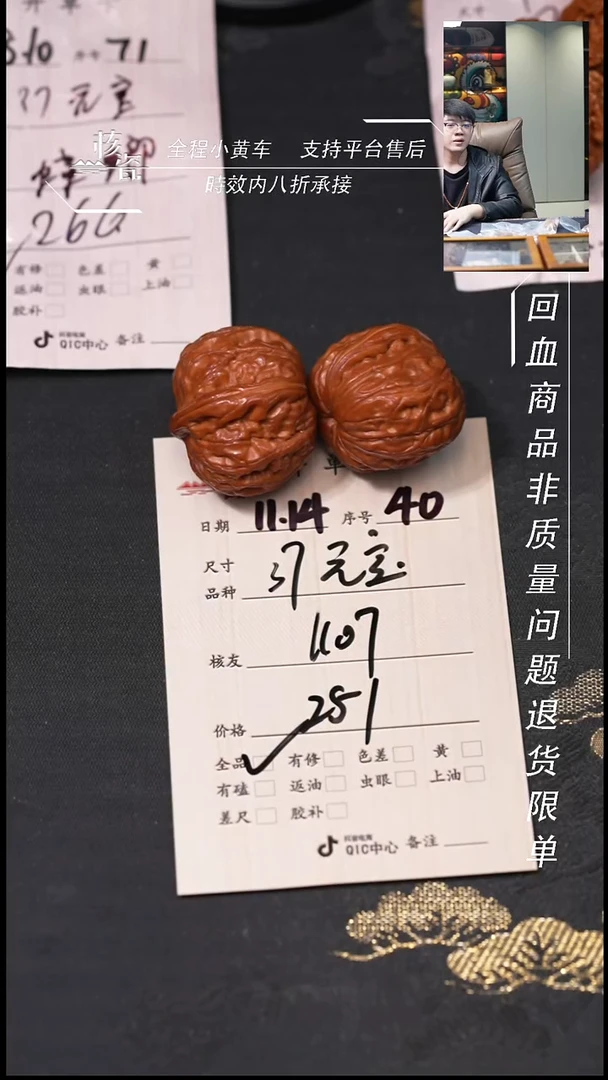 开单卡
310 序号 71
37元宝
26G
有修 色差 黄
返油 虫眼 上油
胶补
抖音电商
QIC中心 备注
核奇
全程小黄车 支持平台售后
時效内八折承接
回血商品非质量问题退货限单
单
日期 11.14 序号 40
尺寸
品种 37元宝
核友 1107
价格 281
全品 ✓ 有修 色差 黄
有磕 返油 虫眼 上油
差尺 胶补
抖音电商
QIC中心 备注